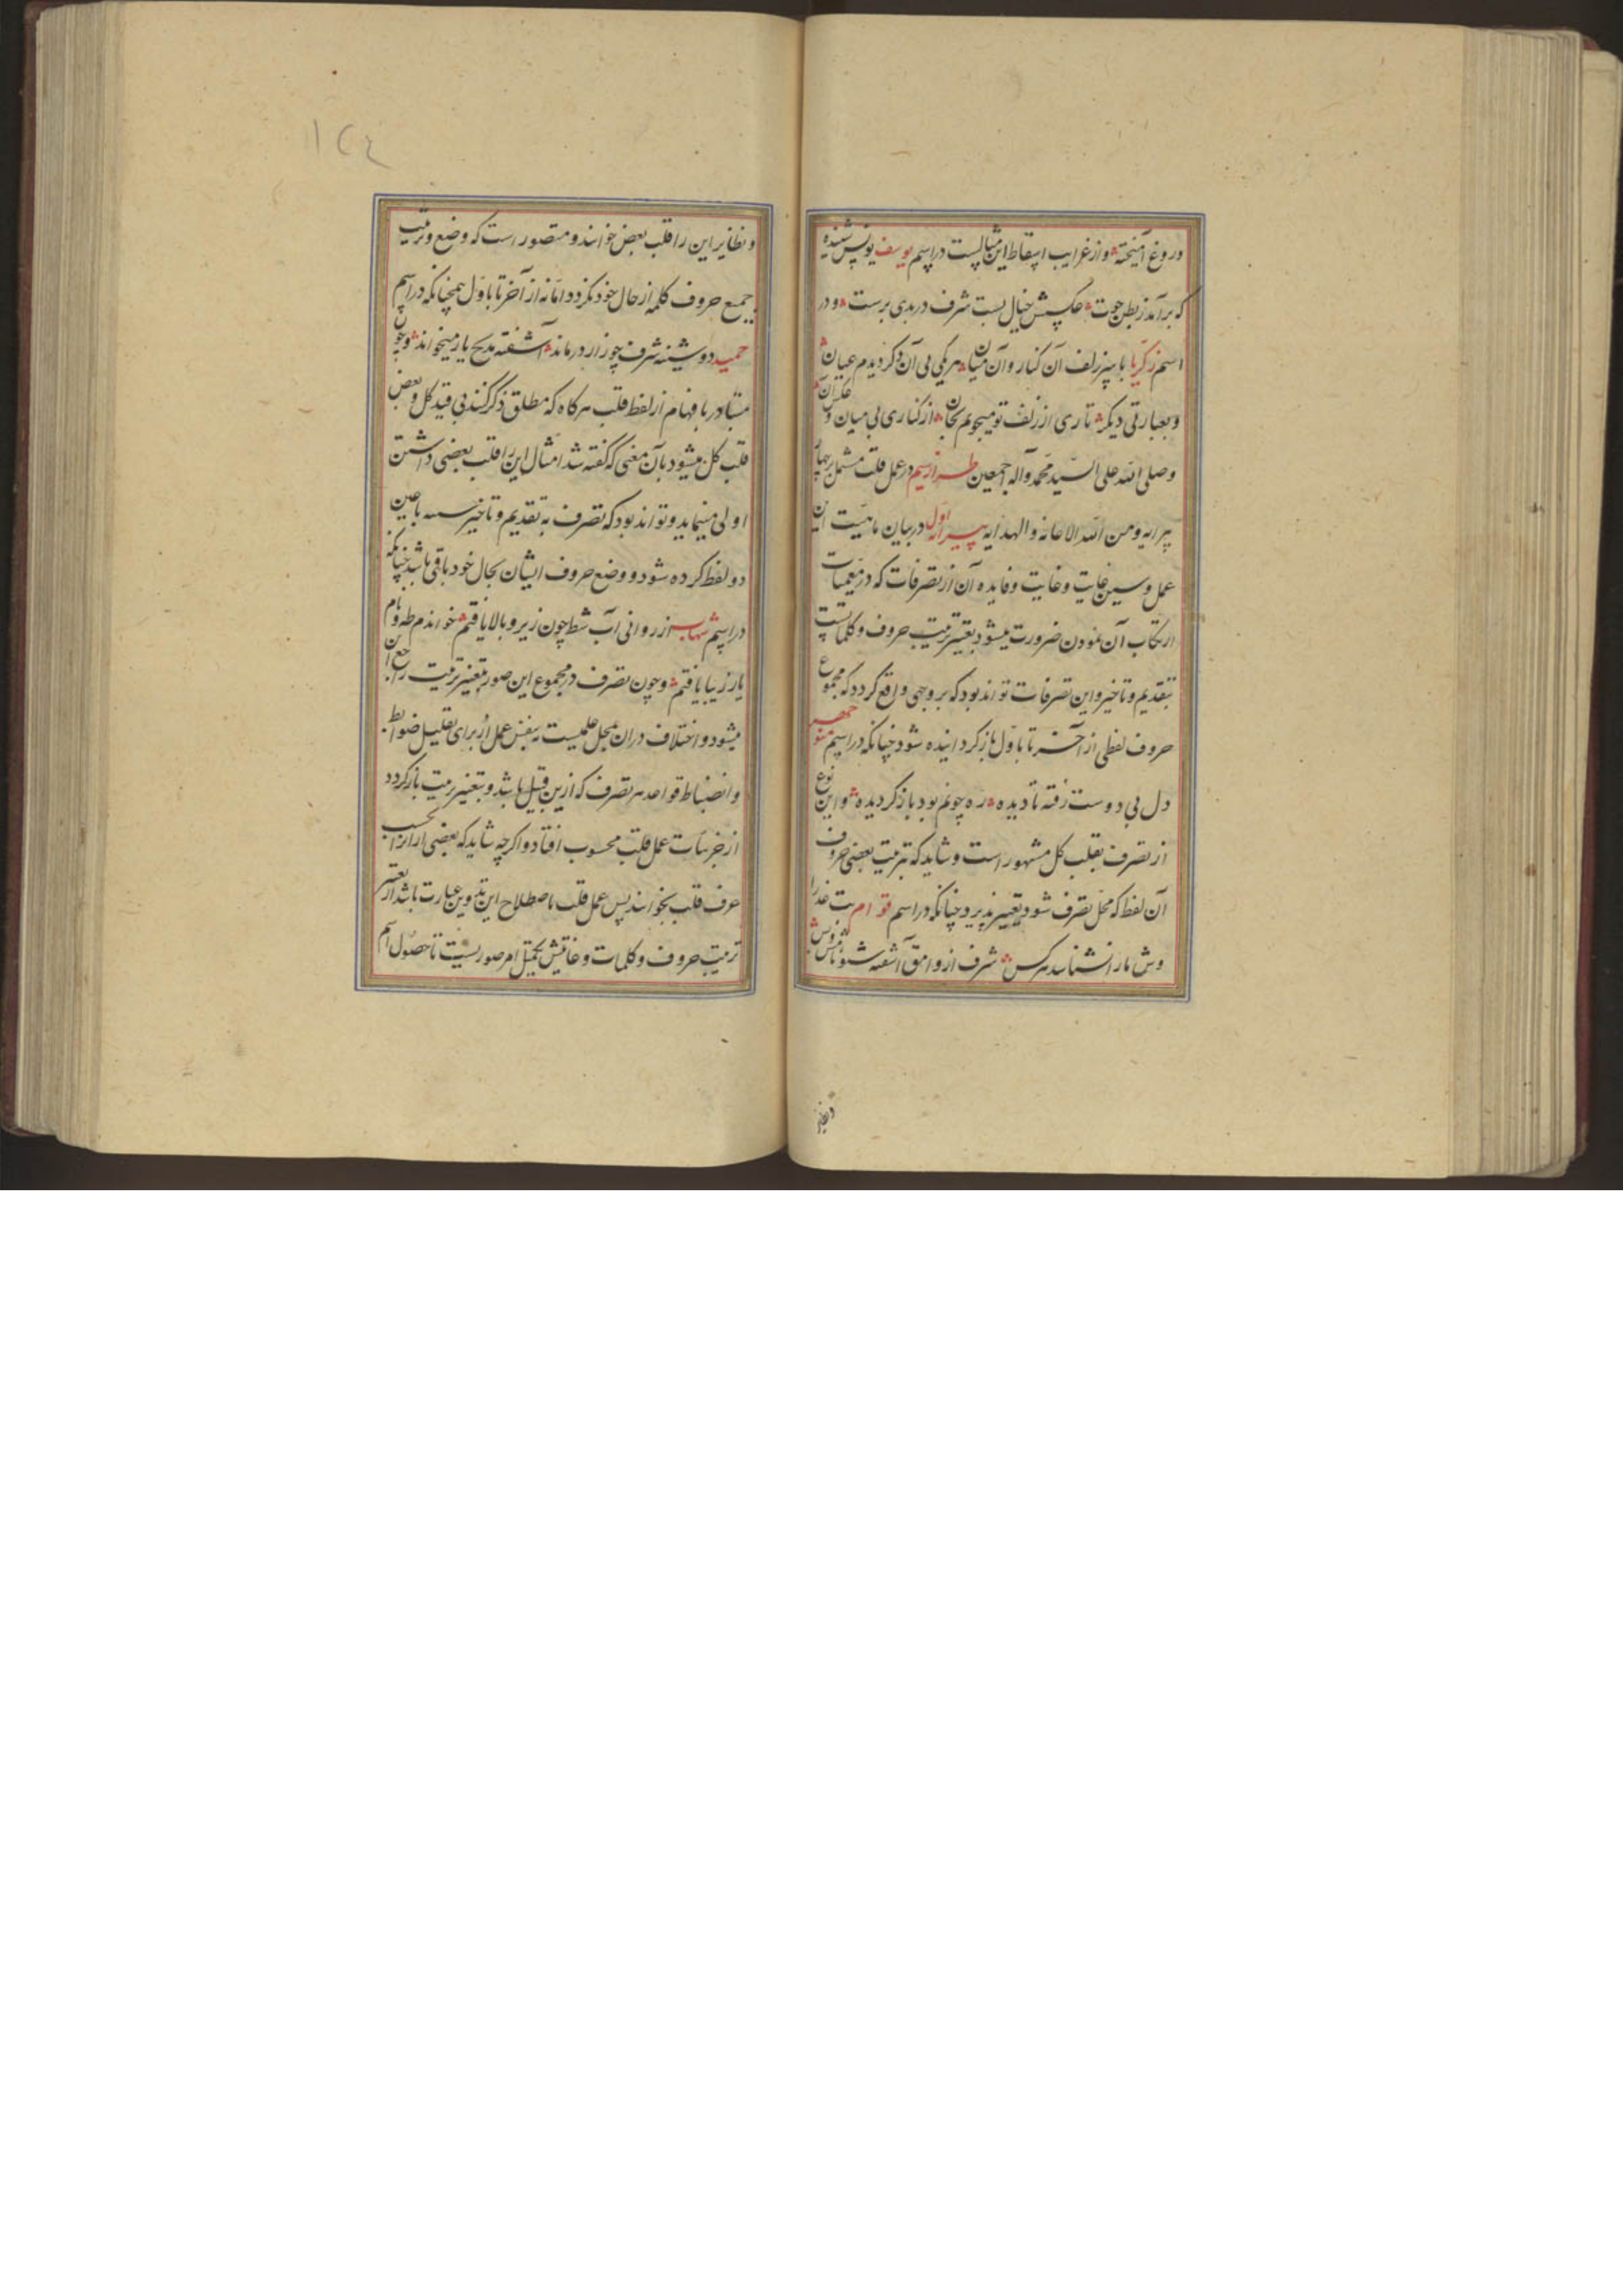 دروغ آمیخته و از غرایب اسقاط این مثالیست در اسم یوسف یونس شنیده
که برآمد ز بطن حوت عکسش خیال بست شرف در بدی برست و در
اسم زکریا با سر زلف آن کنار و آن میان هر یکی بی آن دگر دیدم عیان
و بعبارتی دیگر تاری از زلف تو میجویم بجان از کناری بی میان و عکس آن
وصلی الله علی السید محمد وآله اجمعین طراز سیم در عمل قلب مشتمل بر چهار
پیرایه ومن الله الاعانه والهدایه پیرایه اول در بیان ماهیت این
عمل و سین غایت و غایت و فایده آن از تصرفات که در معمیات
ارتکاب آن نمودن ضرورت میشود تغییر ترتیب حروف و کلماتست
بتقدیم و تاخیر و این تصرفات تواند بود که بر وجهی واقع گردد که مجموع
حروف لفظی از آخر تا باول باز گردانیده شود چنانکه در اسم منوچهر
دل بی دوست رفته تا دیده ره چونم بود باز گردیده و این نوع
از تصرف بقلب کل مشهور است و شاید که ترتیب بعضی حروف
آن لفظ که محل تصرف شود تغییر پذیرد چنانکه در اسم قوام بت عذرا
وش ما را نشناسد هر کس شرف از وامق آشفته شنو
و نظایر این را قلب بعض خوانند و متصور است که وضع و ترتیب
جمیع حروف کلمه از حال خود بگردد اما نه از آخر تا باول همچنانکه در اسم
حمید دوشینه شرف چو زار در ماند آشفته مدیح یار میخواند و چون
متبادر بافهام از لفظ قلب هر گاه که مطلق ذکر کنند بی قید کل و بعض
قلب کل میشود بآن معنی که گفته شد امثال این را قلب بعضی داشتن
اولی مینماید و تواند بود که تصرف به تقدیم و تاخیر باعین
دو لفظ کرده شود و وضع حروف ایشان بحال خود باقی باشد چنانکه
در اسم شهاب از روانی آب شط چون زیر و بالا یافتم خواندم طه و نام
یار زیبا یافتم و چون تصرف در مجموع این صور بتغییر ترتیب راجع
میشود و اختلاف دران بمحل عملیست نه بنفس عمل از برای تقلیل ضوابط
و انضباط قواعد هر تصرف که ازین قبیل باشد و بتغییر ترتیب باز گردد
از جزئیات عمل قلب محسوب افتاد و اگرچه شاید که بعضی را ازان بحسب
عرف قلب نخوانند پس عمل قلب باصطلاح این تدوین عبارت باشد از تغییر
ترتیب حروف و کلمات و غایتش تکمیل امر صوریست تا حصول اسم